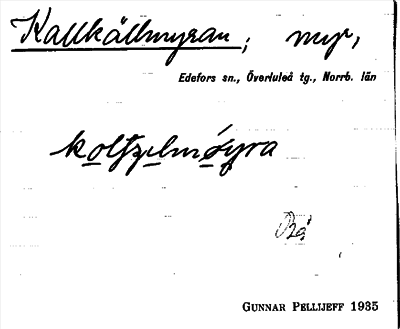 Kallkällmyran; myr,
Edefors sn., Överluleå tg., Norrb. län
Bå
GUNNAR PELLIJEFF 1935